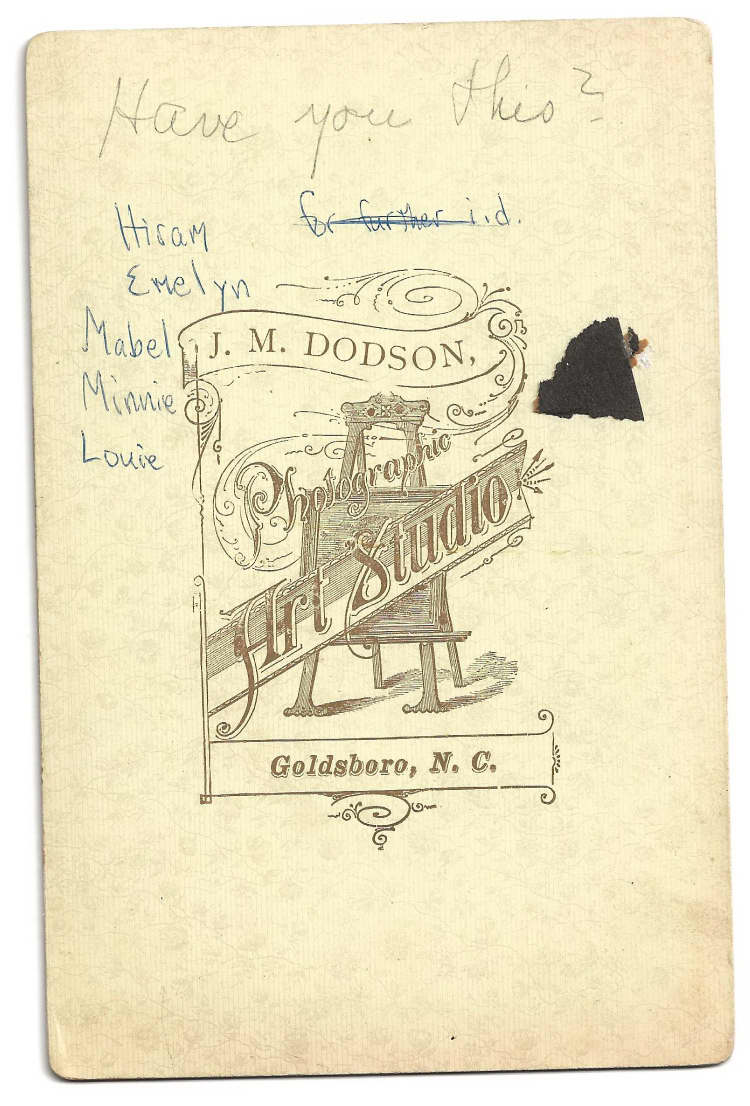 Have you this?
for further i.d.
Hiram
Emelyn
Mabel
Minnie
Louie
J. M. DODSON,
Photographic
Art Studio
Goldsboro, N. C.